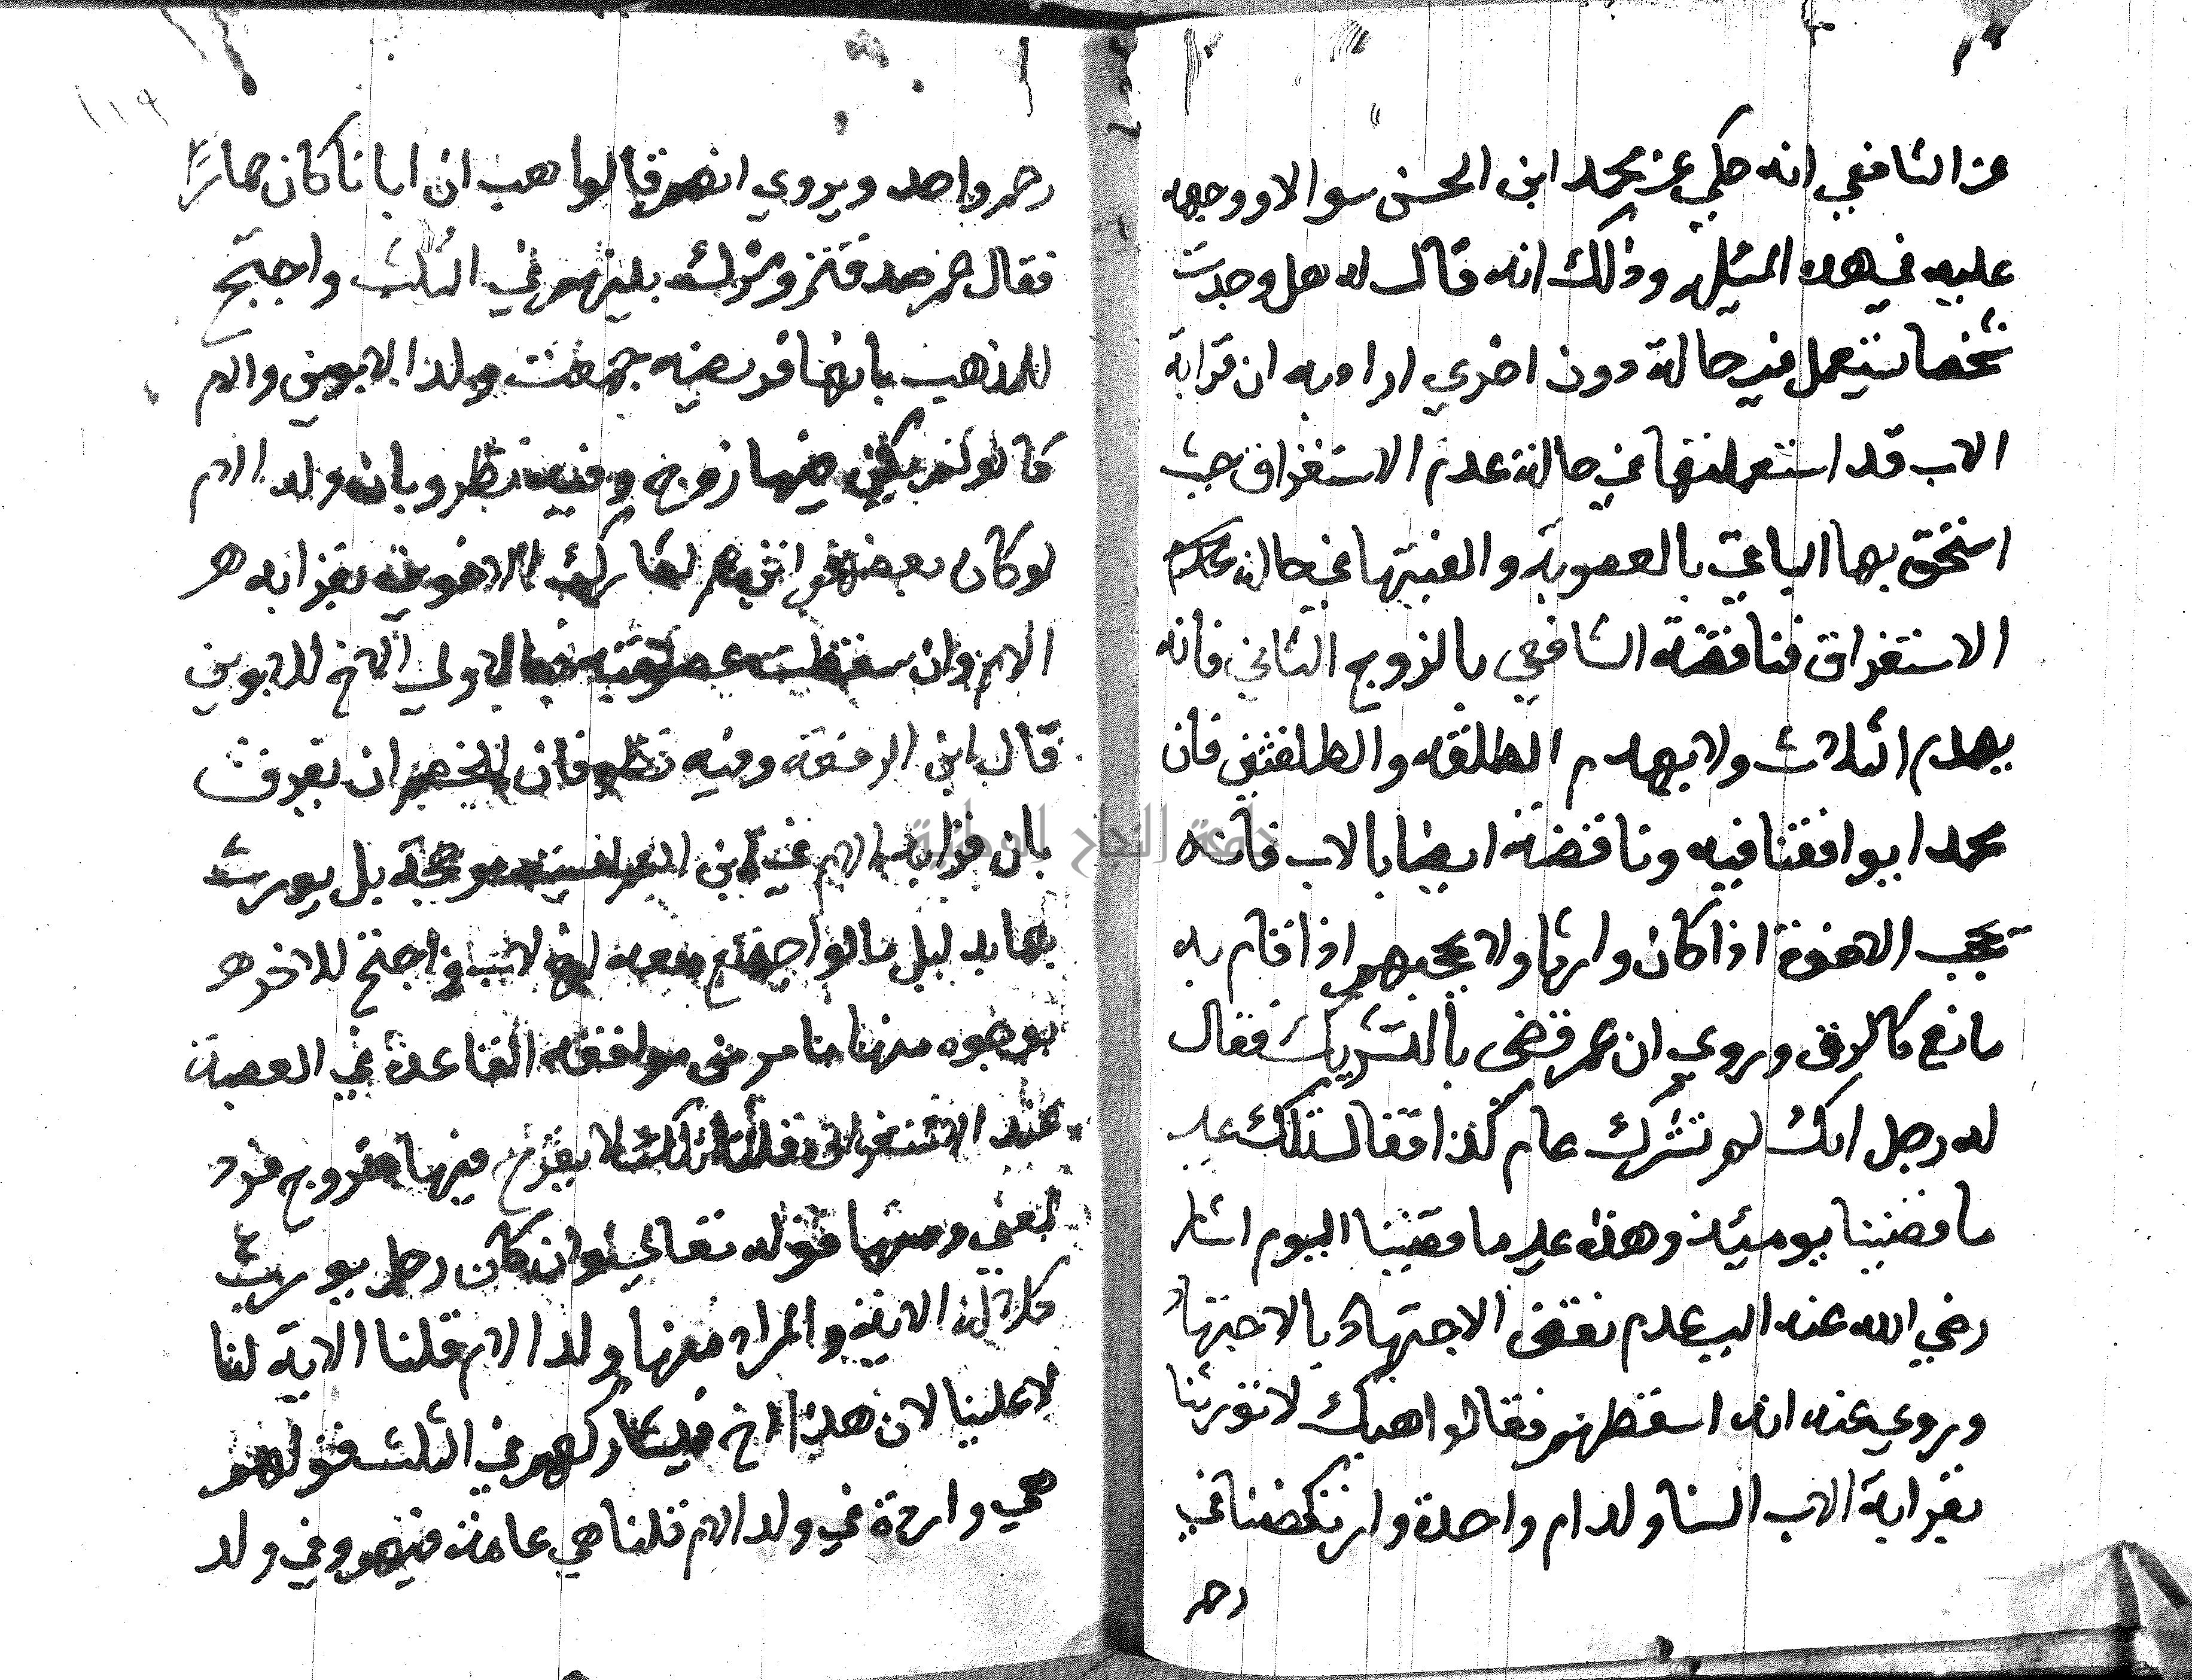 عن الشافعي انه حكي عن محمد ابن الحسن سوالا ووجهه
عليه في هده المسئله وذلك انه قال له هل وجدت
شخصا يستعمل في حالة دون اخري اراد به ان قرابة
الاب قد استعملتها في حالة عدم الاستغراق حيث
استحق بها الباقي بالعصوبة والغيتها في حاله عدم
الاستغراق فناقضة الشافعي بالزوج الثاني فانه
يهدم الثلاث ولا يهدم الطلقه والطلقتين فان
محمدا يوافقنا فيه وناقضة ايضا بالاب فانه
يحجب الاخوة اذا كان وارثا ولا يحجبهم اذا قام به
مانع كالرق وروي ان عمر قضى بالتشريك فقال
له رجل انك لم تشرك عام كذا فقال تلك علي
ما قضينا يوميئذ وهذه علي ما قضينا اليوم اشار
رضي الله عنه الي عدم نقض الاجتهاد بالاجتهاد
وروي عنه انه اسقطهم فقالوا هبك لا تورثنا
بقرابة الاب السنا ولد ام واحدة وارتكضنا في
رحم
١١٩
رحم واحد ويروي انهم قالوا هب ان ابانا كان حمارًا
فقال عمر صدقتم وشرك بينهم في الثلث واحتج
للمذهب بانها فريضه جمعت ولد الابوين والام
كما لو لم يكن فيها زوج وفيه نظر وبان ولد الام
لو كان بعضهم ابن عم لشارك الاخوين بقرابه
الام وان سقطت عصوبته فبالاولي الاخ للابوين
قال ابن الرفعة وفيه نظر فان للخصم ان يفرق
بان قرابة الام في ابن العم ليست مرجحة بل يورث
بها بدليل ما لو اجتمع معه اخ لاب واحتج للاخر
بوجوه منها ما مر من موافقه القاعدة في العصبة
عند الاستغراق قلنا ذلك لا يقدح فيها خروج فرد
لمعني ومنها قوله تعالي وان كان رجل يورث
كلالة الاية والمراد منها ولد الام قلنا الاية لنا
لا علينا لان هذا الاخ فيشاركهم في الثلث قولهم
هي واردة في ولد الام قلنا هي عامة فيهم وفي ولد
جامعة النجاح الوطنية